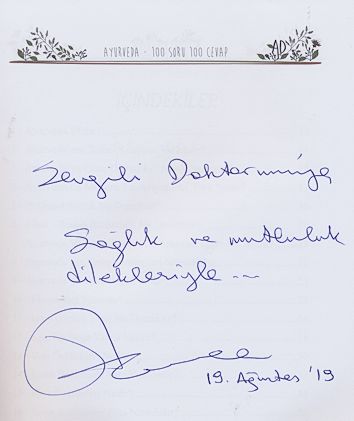 AYURVEDA - 100 SORU 100 CEVAP
AD
İÇİNDEKİLER
Sevgili Doktorumuza
Sağlık ve mutluluk
dilekleriyle ...
19. Ağustos '19